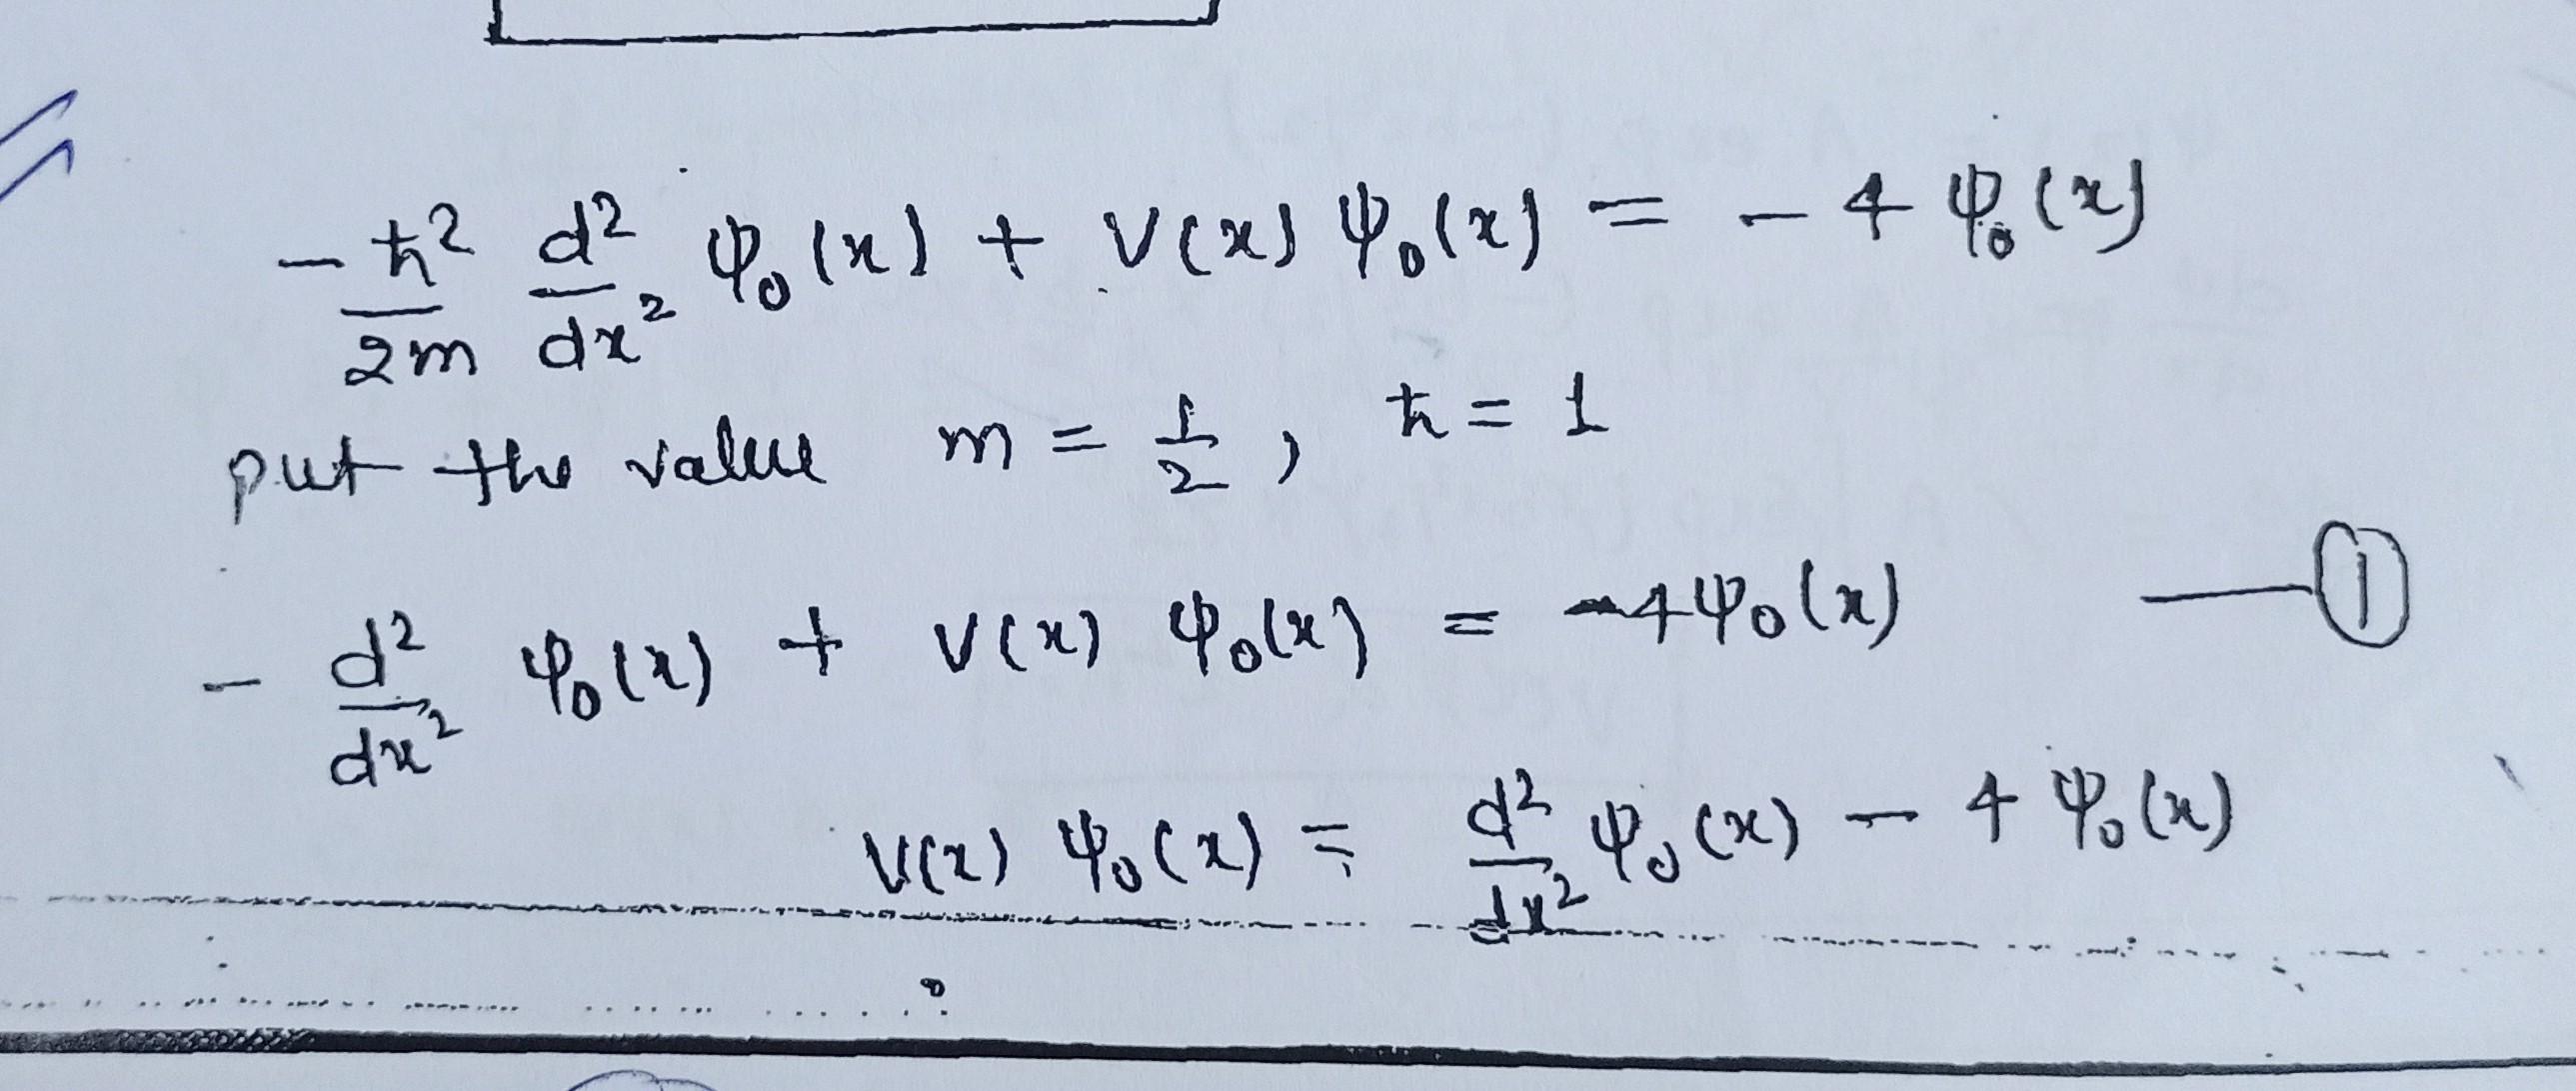 -ħ²/2m d²/dx² ψ₀(x) + V(x) ψ₀(x) = - 4 ψ₀(x)
put the value m = 1/2 , ħ = 1
- d²/dx² ψ₀(x) + V(x) ψ₀(x) = -4ψ₀(x) — ①
V(x) ψ₀(x) = d²/dx² ψ₀(x) - 4 ψ₀(x)